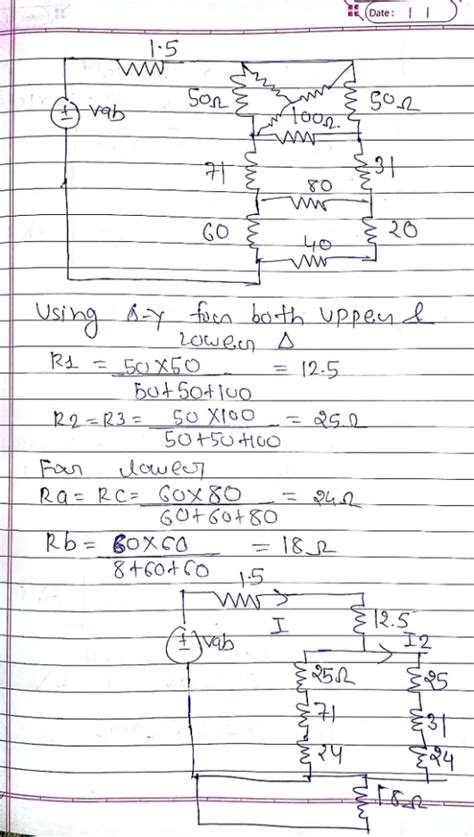 Date: | |
1.5
50Ω
50Ω
100Ω
Vab
71
31
80
60
20
40
Using Δ-Y for both upper &
lower Δ
R1 = 50×50 / 50+50+100 = 12.5
R2=R3= 50×100 / 50+50+100 = 25Ω
For lower
Ra = Rc= 60×80 / 60+60+80 = 24Ω
Rb = 60×60 / 8+60+60 = 18Ω
1.5
I
12.5
Vab
I2
25Ω
25
71
31
24
24
18Ω